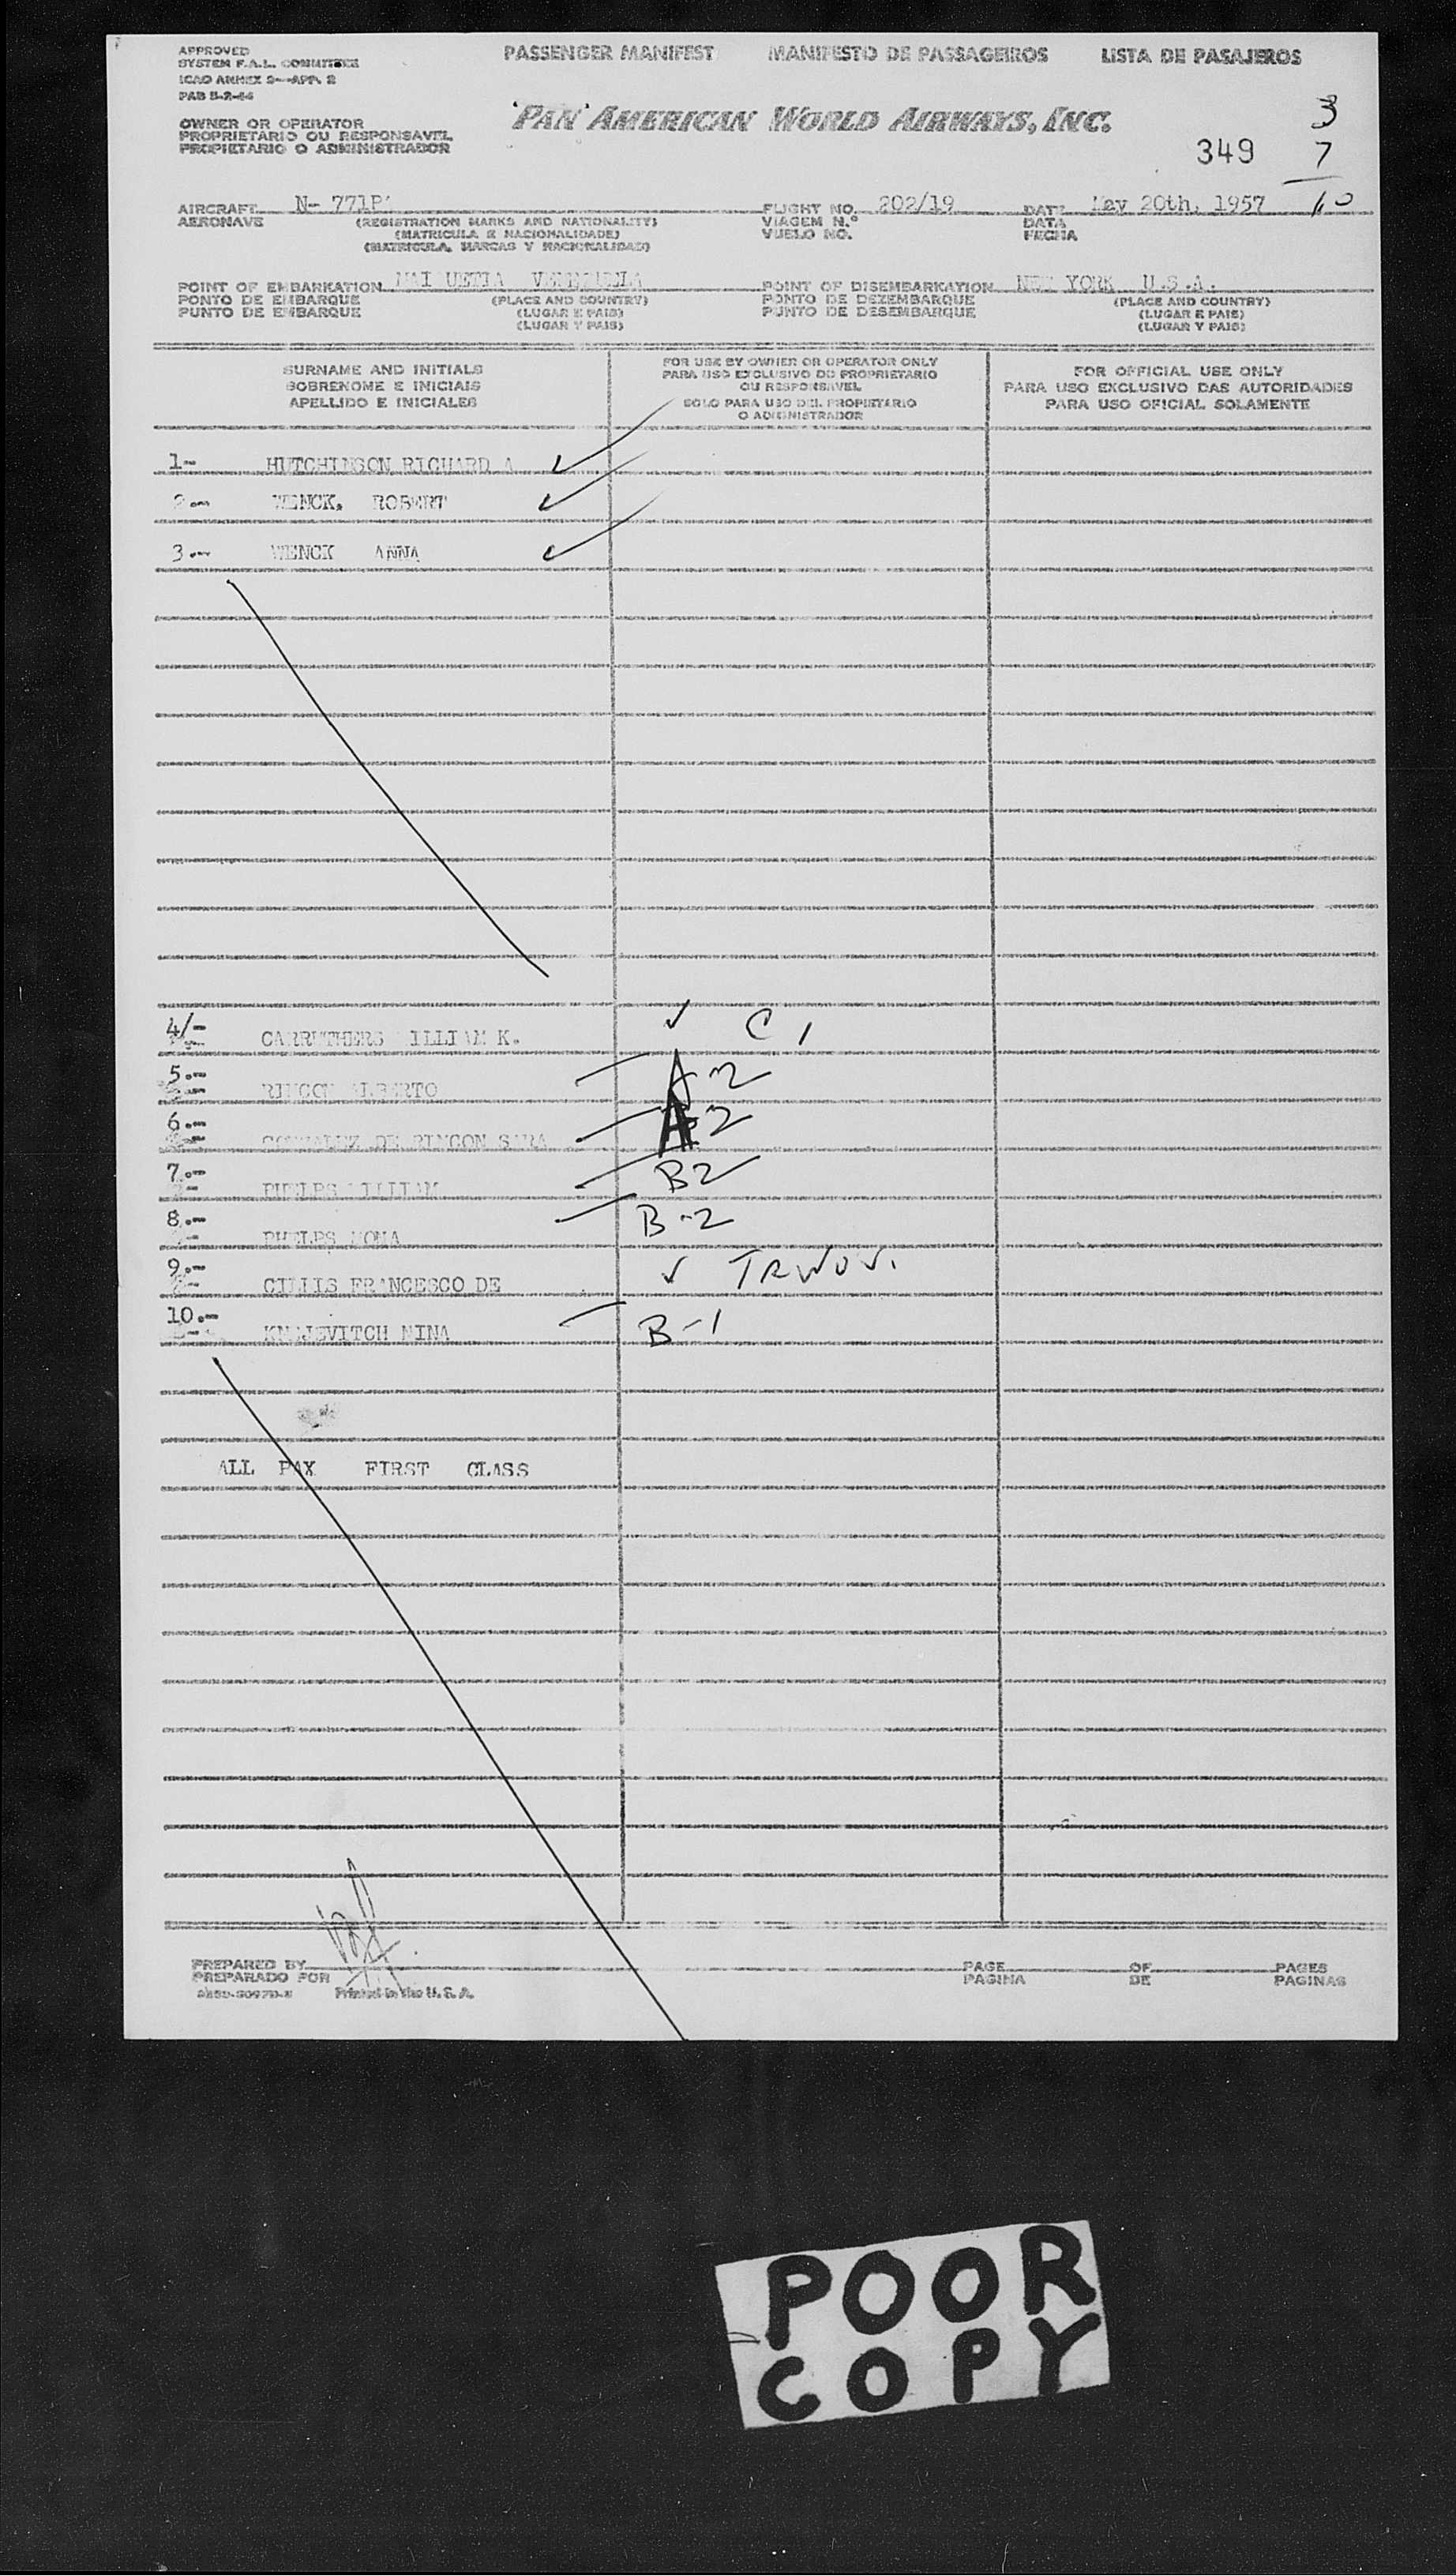 APPROVED
SYSTEM F.A.L. COMMITTEE
ICAO ANNEX 9—APP. 2
PASSENGER MANIFEST MANIFESTO DE PASSAGEIROS LISTA DE PASAJEROS
OWNER OR OPERATOR
PROPRIETARIO OU RESPONSAVEL
PROPIETARIO O ADMINISTRADOR
PAN AMERICAN WORLD AIRWAYS, INC.
3
349 7
10
AIRCRAFT N- 771P FLIGHT NO. 202/19 DATE May 20th, 1957
AERONAVE (REGISTRATION MARKS AND NATIONALITY) VIAGEM N.º DATA
(MATRICULA E NACIONALIDADE) VUELO NO. FECHA
(MATRICULA, MARCAS Y NACIONALIDAD)
POINT OF EMBARKATION MAI UETIA VENEZUELA POINT OF DISEMBARKATION NEW YORK U.S.A.
PONTO DE EMBARQUE (PLACE AND COUNTRY) PONTO DE DEZEMBARQUE (PLACE AND COUNTRY)
PUNTO DE EMBARQUE (LUGAR E PAIS) PUNTO DE DESEMBARQUE (LUGAR E PAIS)
(LUGAR Y PAIS) (LUGAR Y PAIS)
SURNAME AND INITIALS
SOBRENOME E INICIAIS
APELLIDO E INICIALES
FOR USE BY OWNER OR OPERATOR ONLY
PARA USO EXCLUSIVO DO PROPRIETARIO
OU RESPONSAVEL
SOLO PARA USO DEL PROPIETARIO
O ADMINISTRADOR
FOR OFFICIAL USE ONLY
PARA USO EXCLUSIVO DAS AUTORIDADES
PARA USO OFICIAL SOLAMENTE
1- HUTCHINSON RICHARD A ✓
2.- WENCK, ROBERT ✓
3.- WENCK ANNA ✓
4/- CARRUTHERS WILLIAM K. ✓ C 1
5.- RINCON ALBERTO A-2
6.- GONZALEZ DE RINCON SARA A-2
7.- PHELPS WILLIAM B2
8.- PHELPS MONA B-2
9.- FRANCESCO DE ✓
10.- NINA B-1
ALL PAX FIRST CLASS
PREPARED BY PAGE OF PAGES
PREPARADO POR PAGINA DE PAGINAS
Printed in the U.S.A.
POOR
COPY